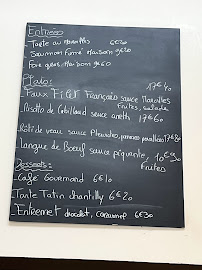 Entrées
- Tarte au Maroilles 6€20
Saumon Fumé Maison 9€60
Foie gras Maison 9€60
Plats:
Faux Filet Français sauce Maroilles 17€40
frites, salade
- Risotto de Cabillaud sauce aneth 17€60
- Rôti de veau sauce Pleurotes, pommes 17€80
- Langue de Boeuf sauce piquante, 10€90
frites
Desserts:
- Café Gourmand 6€10
- Tarte Tatin chantilly 6€20
- Entremet chocolat, caramel 6€30